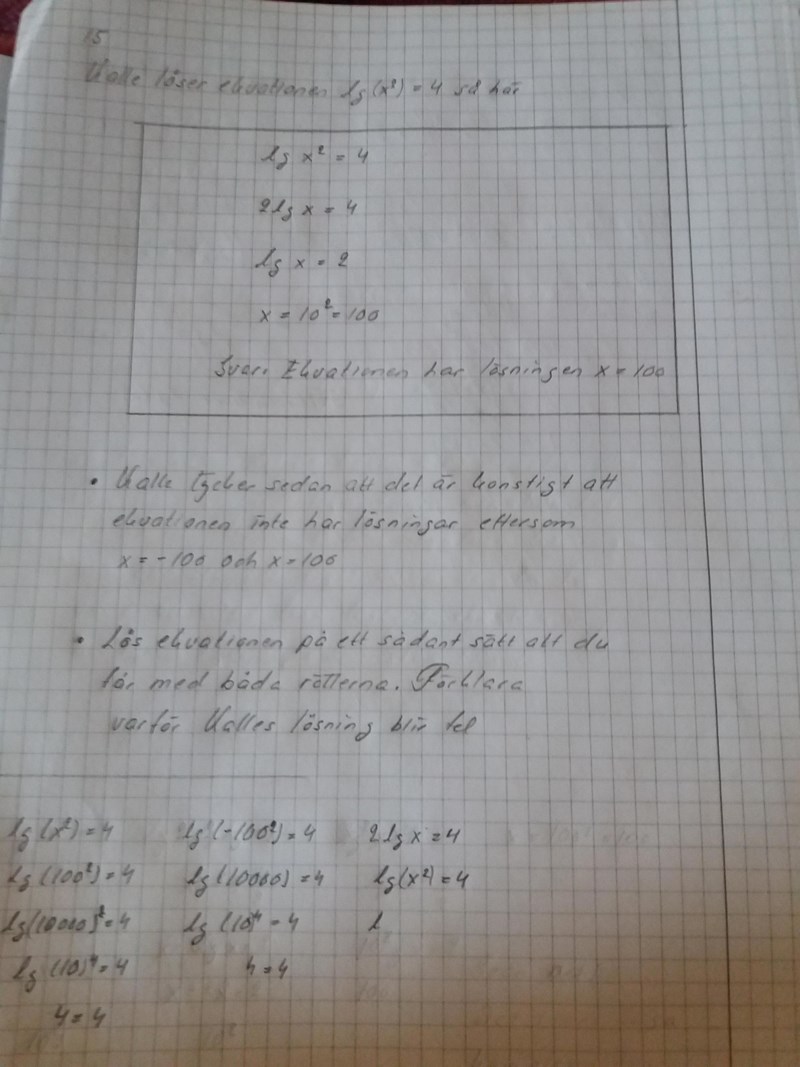 15
Kalle löser ekvationen lg(x²) = 4 så här
lg x² = 4
2lg x = 4
lg x = 2
x = 10² = 100
Svar: Ekvationen har lösningen x = 100
• Kalle tycker sedan att det är konstigt att
ekvationen inte har lösningar eftersom
x = -100 och x = 100
• Lös ekvationen på ett sådant sätt att du
får med båda rötterna. Förklara
varför Kalles lösning blir fel
lg(x²) = 4 lg(-100²) = 4 2lg x = 4
lg(100²) = 4 lg(10000) = 4 lg(x²) = 4
lg(10000)² = 4 lg(10)⁴ = 4 l
lg(10)⁴ = 4 4 = 4
4 = 4